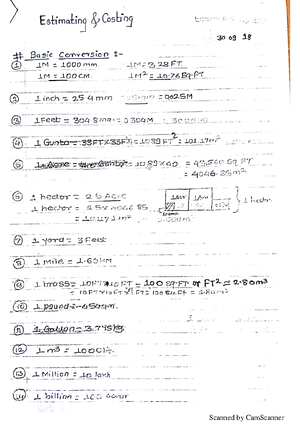 Estimating & Costing
30 09 18
# Basic Conversion :-
① 1M = 1000mm 1M = 3.28FT
1M = 100cm 1M² = 10.76 sq.FT
② 1 inch = 25.4 mm = 0.025M
③ 1 Feet = 304.8 mm = 0.304M
④ 1 Gunta = 33FT × 33FT = 1089 FT² = 101.17m²
⑤ 1 Acre = 1089×40 = 43560 sq.FT
= 4046.85m²
⑥ 1 hector = 2.5 Acre
1 hector = 2.5 × 4046.85
1 hector
⑦ 1 yard = 3 Feet
⑧ 1 Mile = 1.60 KM
⑨ 1 brass = 10FT×10FT = 100 sq.FT or FT² = 2.80m³
⑩ 1 pound =
⑪ 1 Gallon =
⑫ 1 m³ = 1000 lit.
⑬ 1 Million = 10 lakh
⑭ 1 billion = 100 caror
Scanned by CamScanner